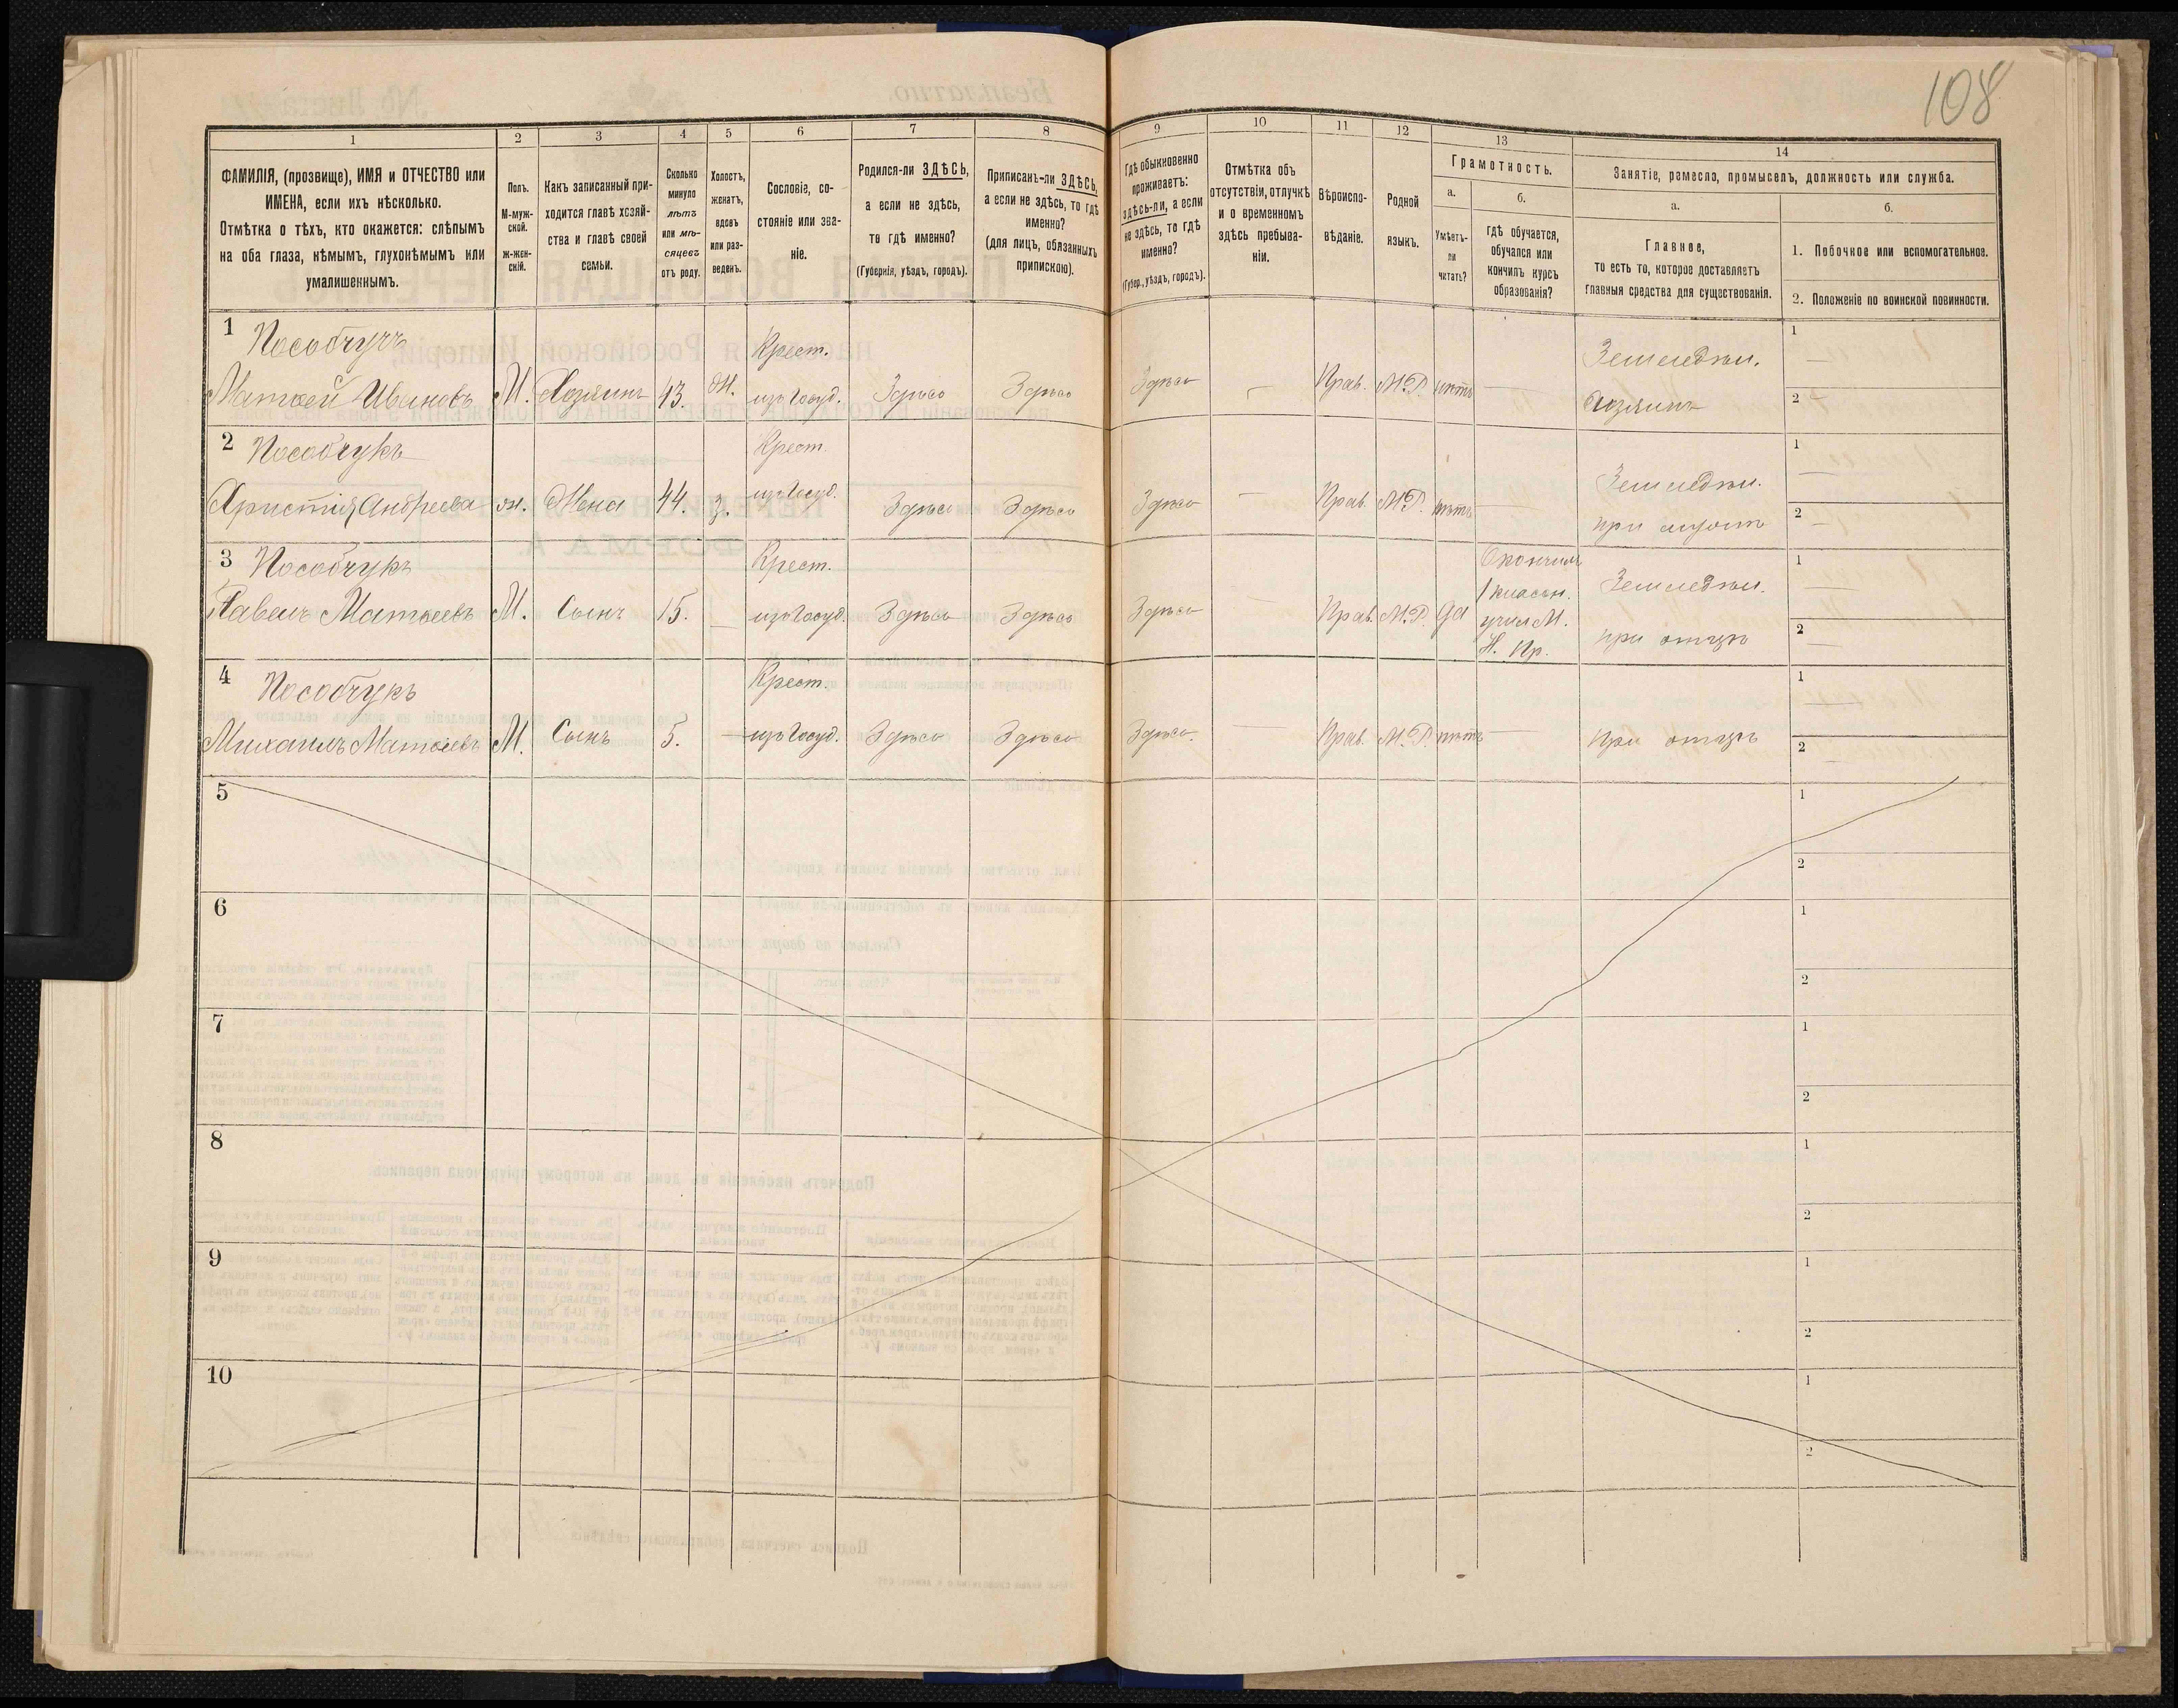 108
1
2
3
4
5
6
7
8
9
10
11
12
13
14
ФАМИЛІЯ, (прозвище), ИМЯ и ОТЧЕСТВО или
ИМЕНА, если ихъ нѣсколько.
Отмѣтка о тѣхъ, кто окажется: слѣпымъ
на оба глаза, нѣмымъ, глухонѣмымъ или
умалишеннымъ.
Полъ.
М-муж-
ской.
ж-жен-
скій.
Какъ записанный при-
ходится главѣ хозяй-
ства и главѣ своей
семьи.
Сколько
минуло
лѣтъ
или мѣ-
сяцевъ
отъ роду.
Холостъ,
женатъ,
вдовъ
или раз-
веденъ.
Сословіе, со-
стояніе или зва-
ніе.
Родился-ли ЗДѢСЬ,
а если не здѣсь,
то гдѣ именно?
(Губернія, уѣздъ, городъ).
Приписанъ-ли ЗДѢСЬ,
а если не здѣсь, то гдѣ
именно?
(для лицъ, обязанныхъ
припискою).
Гдѣ обыкновенно
проживаетъ:
здѣсь-ли, а если
не здѣсь, то гдѣ
именно?
(Губер., уѣздъ, городъ).
Отмѣтка объ
отсутствіи, отлучкѣ
и о временномъ
здѣсь пребыва-
ніи.
Вѣроиспо-
вѣданіе.
Родной
языкъ.
Грамотность.
а.
Умѣетъ-
ли
читать?
б.
гдѣ обучается,
обучался или
кончилъ курсъ
образованія?
Занятіе, ремесло, промыселъ, должность или служба.
а.
Главное,
то есть то, которое доставляетъ
главныя средства для существованія.
б.
1. Побочное или вспомогательное.
2. Положеніе по воинской повинности.
1
Пособчукъ
Крест.
Земледѣл.
1
Матвей Ивановъ М. Хозяинъ 43. Ж. изъ Госуд. Здѣсь Здѣсь Здѣсь — Прав. М.Р. нѣтъ —
хозяинъ
2
2 Пособчукъ
Крест
Земледѣл.
1
Христия Андреева ж. Жена 44. З. изъ Госуд. Здѣсь Здѣсь Здѣсь — Прав. М.Р. нѣтъ —
при
2
3 Пособчукъ
Крест.
Окончилъ
Земледѣл.
1
Павелъ Матвеевъ М. Сынъ 15. — изъ Госуд. Здѣсь Здѣсь Здѣсь — Прав. М.Р. да
1 класн.
учил М.
Н. Пр.
при отцѣ
2
4 Пособчукъ
Крест.
1
Михаилъ Матвеевъ М. Сынъ 5. — изъ Госуд. Здѣсь Здѣсь Здѣсь. — Прав. М.Р. нѣтъ — при отцѣ
2
5
1
2
6
1
2
7
1
2
8
1
2
9
1
2
10
1
2